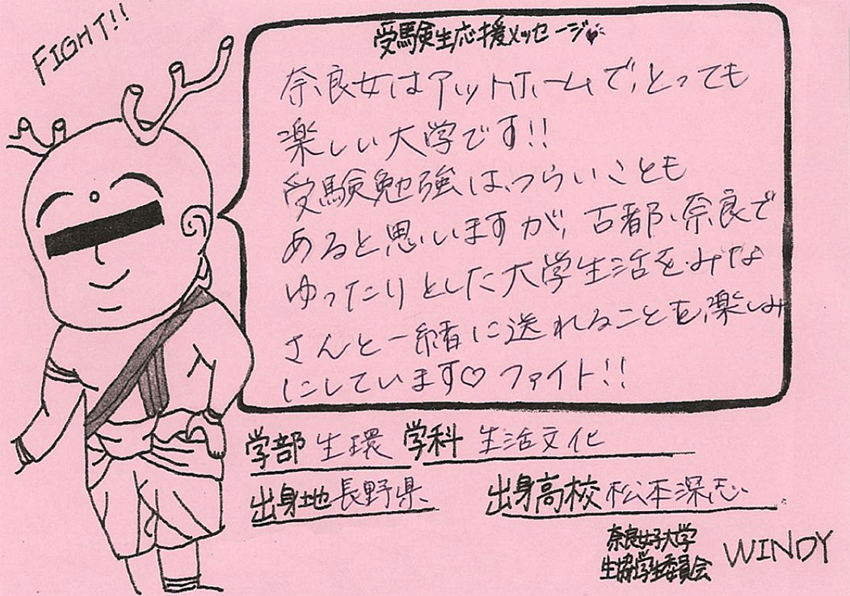 FIGHT!!
受験生応援メッセージ
奈良女はアットホームで、とっても
楽しい大学です!!
受験勉強は、つらいことも
あると思いますが、古都、奈良で
ゆったりとした大学生活を、みな
さんと一緒に送れることを、楽しみ
にしています♡ ファイト!!
学部 生環 学科 生活文化
出身地 長野県 出身高校 松本深志
奈良女子大学
生協学生委員会 WINDY